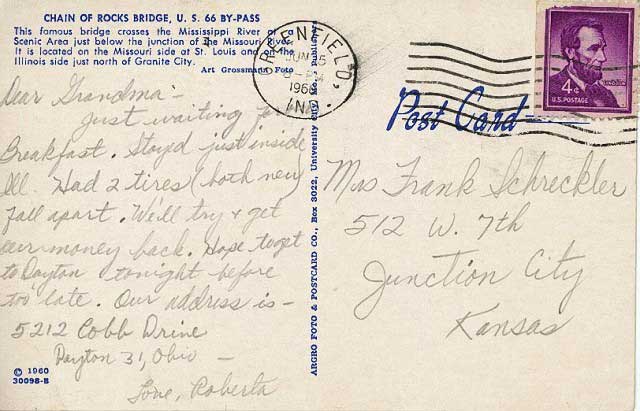 CHAIN OF ROCKS BRIDGE, U. S. 66 BY-PASS
This famous bridge crosses the Mississippi River at
Scenic Area just below the junction of the Missouri River.
It is located on the Missouri side at St. Louis and on the
Illinois side just north of Granite City.
Art Grossmann Foto
Dear Grandma -
Just waiting for
Breakfast. Stayed just inside
Ill. Had 2 tires (both new)
fall apart. We'll try & get
our money back. Hope to get
to Dayton tonight before
too late. Our address is -
5212 Cobb Drive
Dayton 31, Ohio -
Love, Roberta
© 1960
30098-B
ARGRO FOTO & POSTCARD CO., Box 3022, University City, Mo., Publishers
GREENFIELD,
JUN
PM
196
IND.
4¢
U.S. POSTAGE
Post Card
Mrs Frank Schreckler
512 W. 7th
Junction City
Kansas